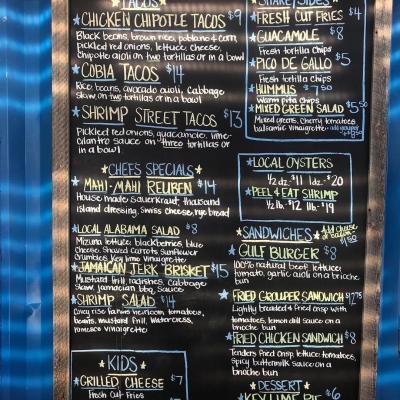 TACOS
CHICKEN CHIPOTLE TACOS $9
Black beans, brown rice, poblano & corn,
pickled red onions, lettuce, cheese,
Chipotle aioli on two tortillas or in a bowl
COBIA TACOS $14
Rice, beans, avocado aioli, Cabbage
Slaw on two tortillas or in a bowl
SHRIMP STREET TACOS $13
Pickled red onions, guacamole, lime-
cilantro sauce on three tortillas or
in a bowl
CHEFS SPECIALS
MAHI-MAHI REUBEN $14
House made sauerkraut, thousand
island dressing, Swiss cheese, rye bread
LOCAL ALABAMA SALAD $8
Mizuna lettuce, blackberries, blue
Cheese, Shaved Carrots, Sunflower
Crumbles, Key lime vinaigrette
JAMAICAN JERK BRISKET $15
Mustard frill, radishes, Cabbage
Slaw, jamaican bbq Sauce
SHRIMP SALAD $14
heirloom tomatoes,
beans, mustard frill, Watercress,
vinaigrette
KIDS
GRILLED CHEESE $7
Fresh Cut Fries
SHARE SIDES
FRESH CUT FRIES $4
GUACAMOLE $8
Fresh tortilla Chips
PICO DE GALLO $5
Fresh tortilla Chips
HUMMUS $7.50
Warm pita Chips
MIXED GREEN SALAD $5.50
Mixed greens, Cherry tomatoes
balsamic Vinaigrette
LOCAL OYSTERS
1/2 dz. $11 1dz. $20
PEEL & EAT SHRIMP
1/2 lb. $12 1lb. $19
SANDWICHES
Add cheese
or bacon
$1.50
GULF BURGER $8
100% natural beef, lettuce,
tomato, garlic aioli on a brioche
bun
FRIED GROUPER SANDWICH $12.75
Lightly breaded & fried crisp with
tomatoes, lemon dill sauce on a
brioche bun
FRIED CHICKEN SANDWICH $8
Tenders fried crisp, lettuce, tomatoes,
spicy buttermilk sauce on a
brioche bun
DESSERT
KEY LIME PIE $6